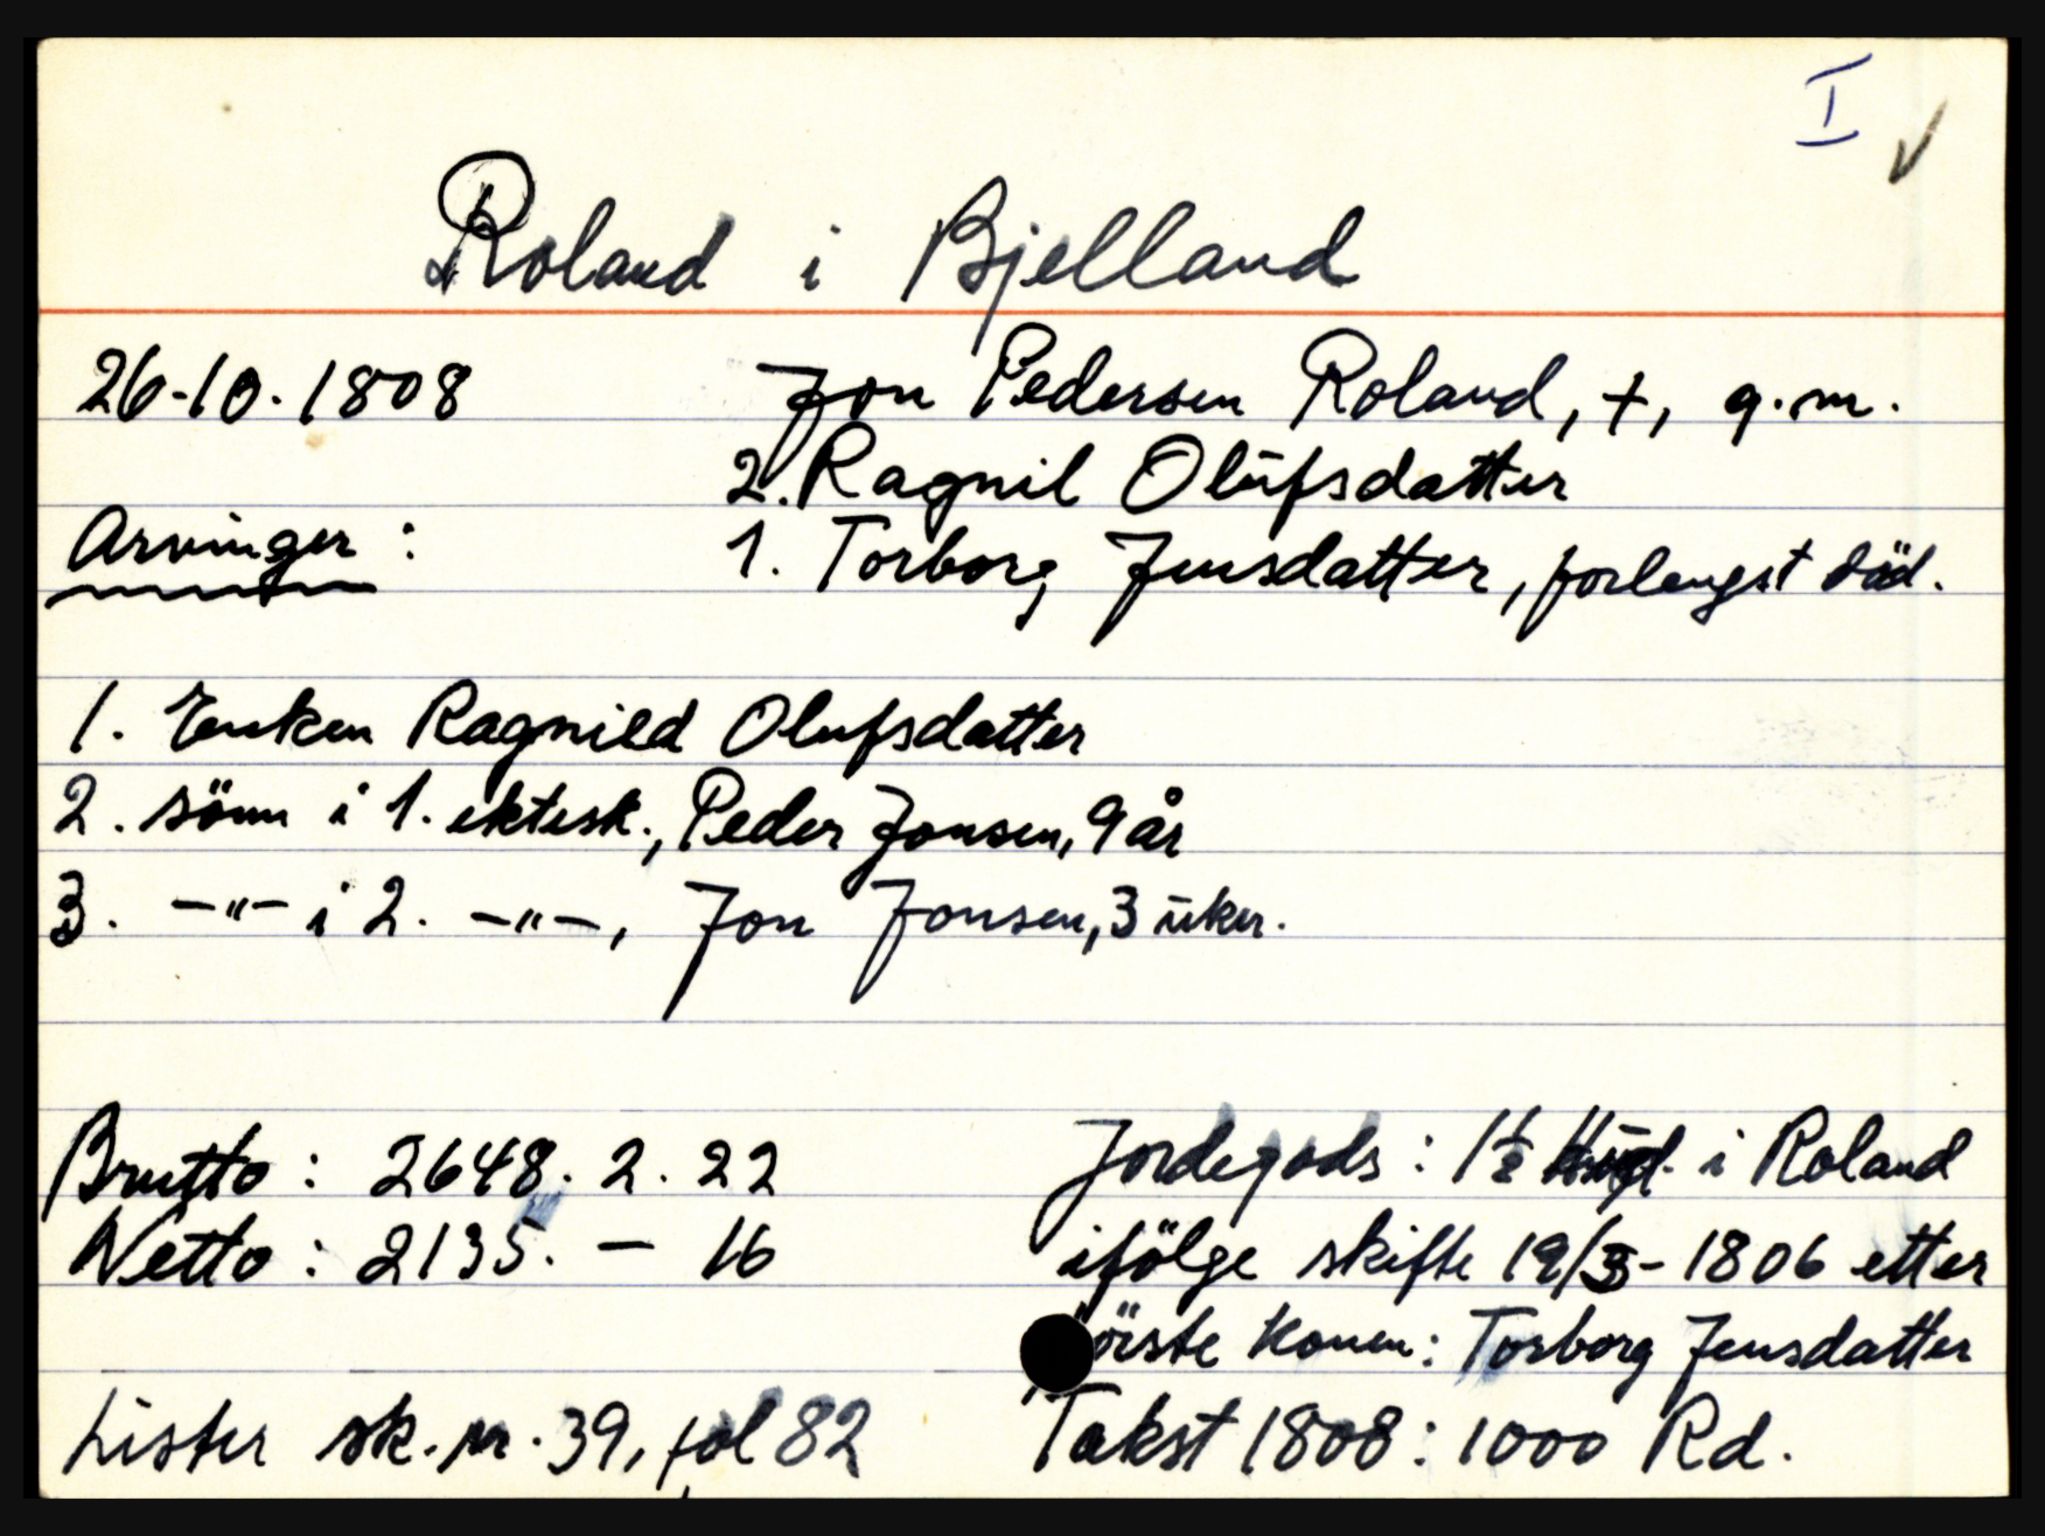 I ✓
Roland i Bjelland
26-10-1808 Jon Pedersen Roland, +, g.m.
2. Ragnil Olufsdatter
Arvinger: 1. Torborg Jensdatter, forlengst död.
1. Enken Ragnild Olufsdatter
2. sönn i 1. ektesk., Peder Jonsen, 9 år
3. —"— i 2. —"—, Jon Jonsen, 3 uker.
Brutto: 2648. 2. 22 Jordegods: 1½ i Roland
Netto: 2135. — 16 ifölge skifte 19/3-1806 etter
örste konen: Torborg Jensdatter
Lister sk. nr. 39, fol 82 Takst 1808: 1000 Rd.